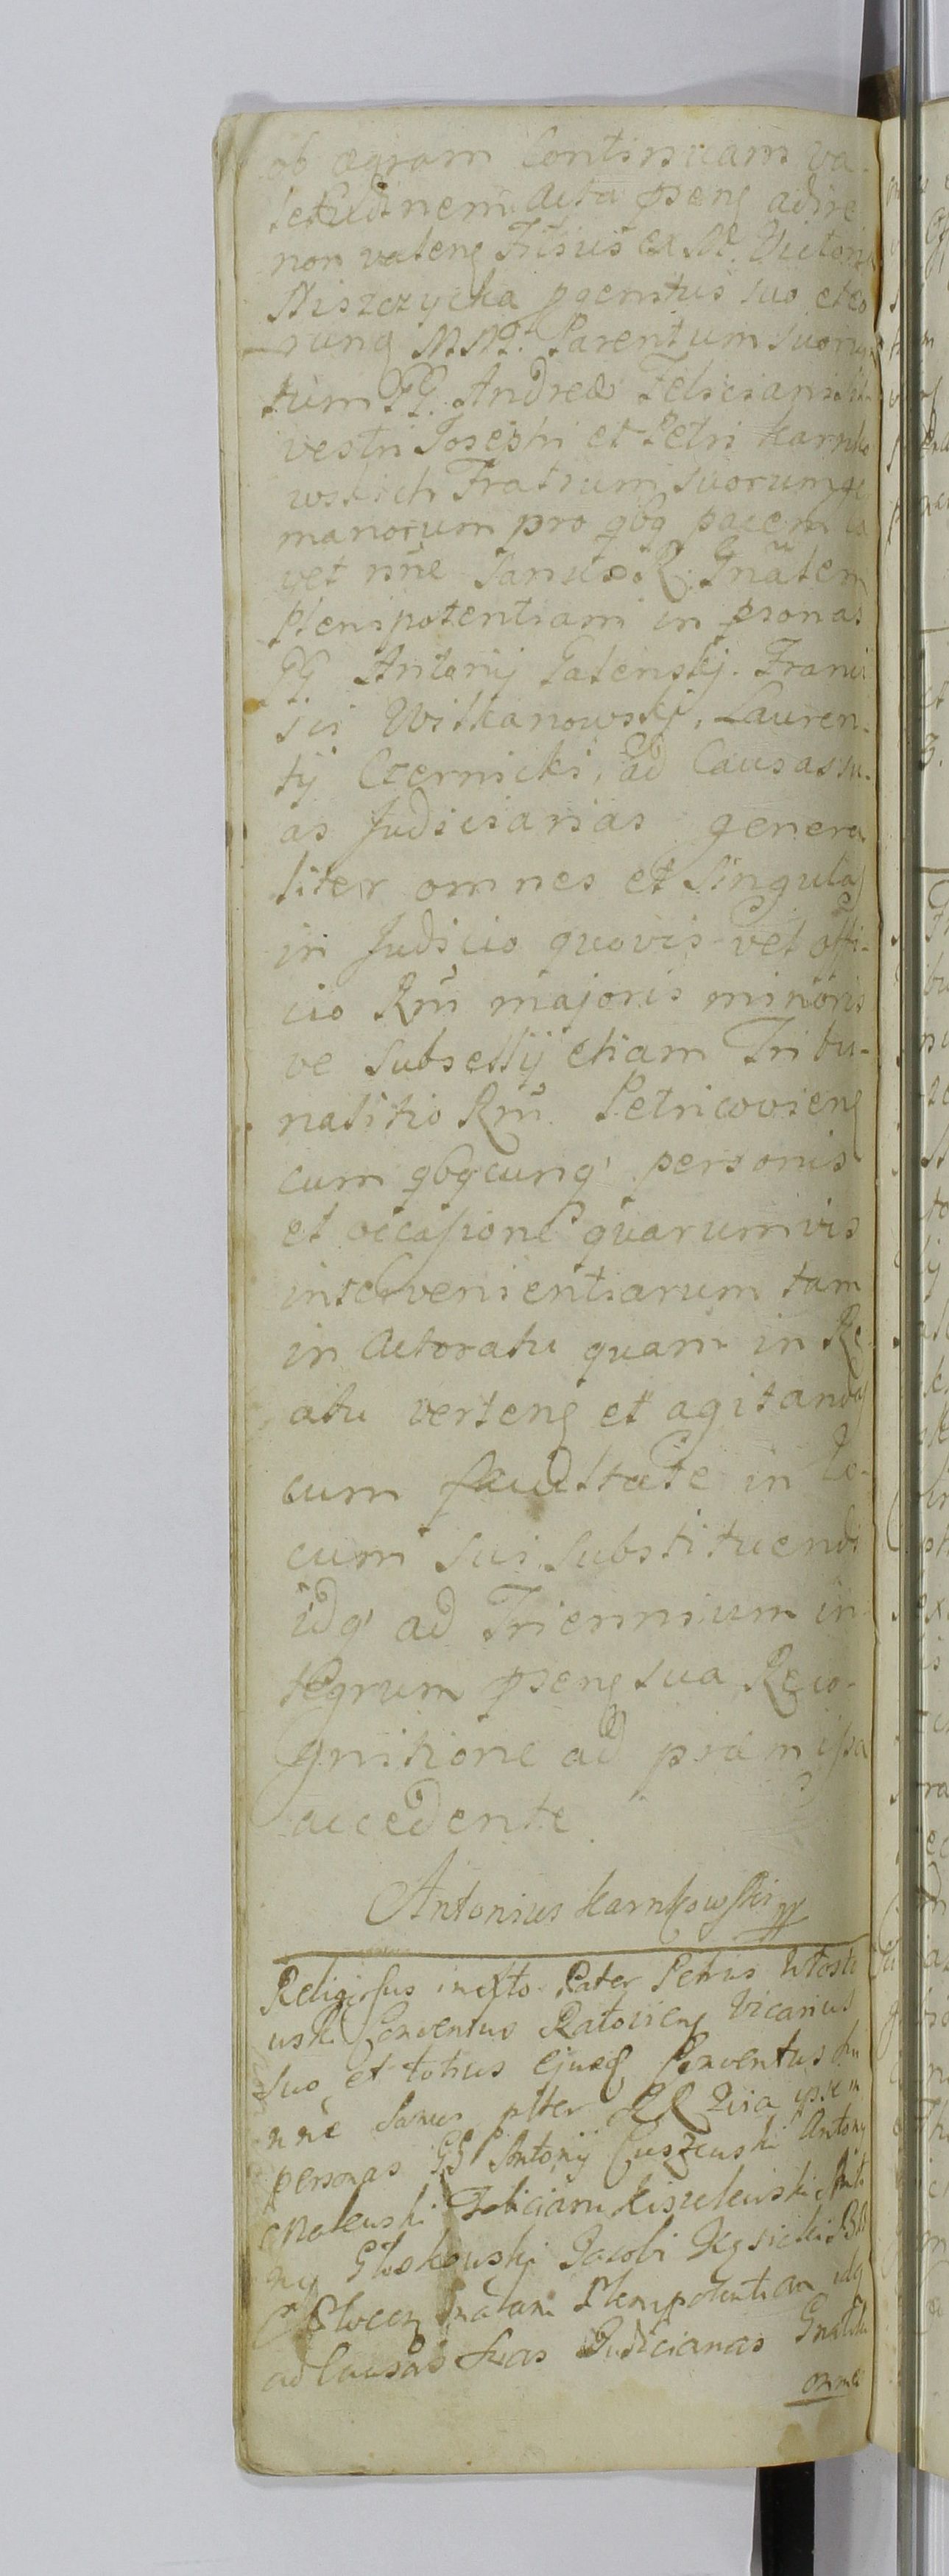 ob ægram Continuam va-
letudinem acta psenꝭ adire
non valenꝭ Filius ex M. Victoria
Niszczycka pgenitus suo et eo
runꝗ MM. Parentum suorum
tum GG. Andreæ Feliciani Sil-
vestri Josephi et Petri Karnko
wskich Fratrum suorum ger
manorum pro qbꝗ pacem ca
vet nñe
Plenipotentiam in psonas
GG. Antonij Fran
sci Witkanowskj, Lauren-
tij Czernicki, ad Causas su-
as Judiciarias genera
liter omnes et singulas
in Judicio quovis vel offi-
cio Rñi majoris minoris
ve subsellij etiam Tribu-
nalitio Rñi Petricovienꝭ
cum qbꝗcunꝗ personis
et occasione quarumvis
intervenientiarum tam
in Actoratu quam in Re
atu vertenꝭ et agitandꝭ
cum facultate in lo-
cum sui substituendi
idꝗ ad Triennium in
tegrum psenꝭ sua Reco-
gnitione ad præmissa
accedente
Antonius Karnkowski
Religiosus in Xto Pater Petrus
uski Conventus Ratovienꝭ Vicarius
suo et totius ejusd Conventus sui
nñe
personas GG Antonij Cuszewski Antony
Feliciani Kiszelewski Anto
ny Głoskowski Jacobi
Plenipotentiam idꝗ
ad Causas suas Judiciarias Gnalit
omnes